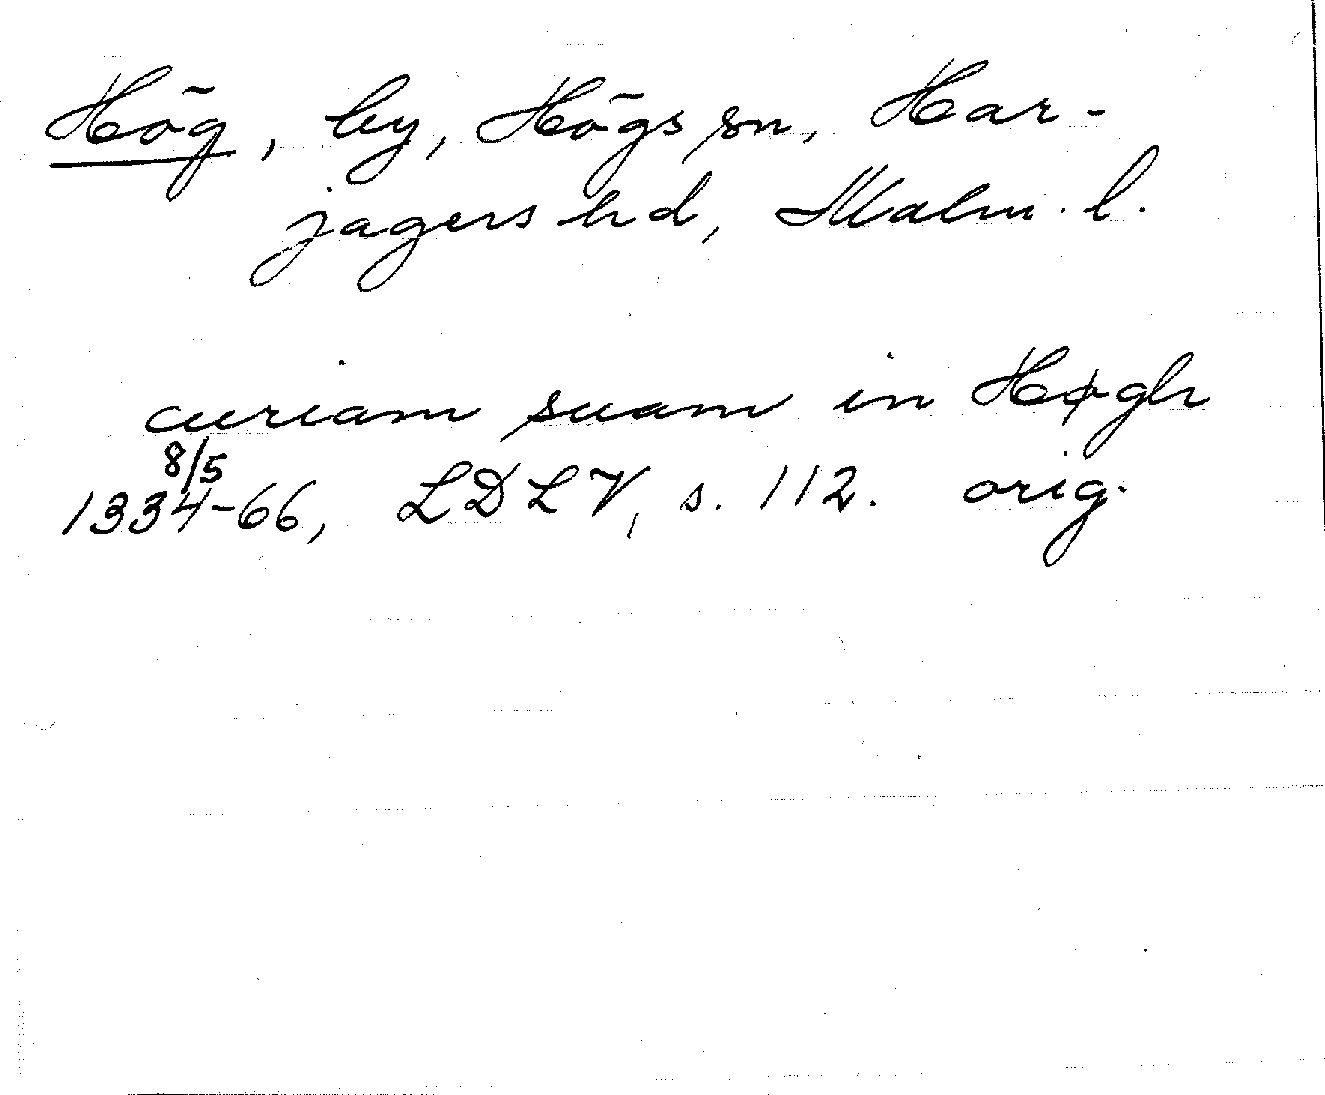 Hög, by, Högs sn, Har-
jagers hd, Malm. l.
curiam suam in Høgh
8/5
1334-66, LDLV, s. 112. orig.